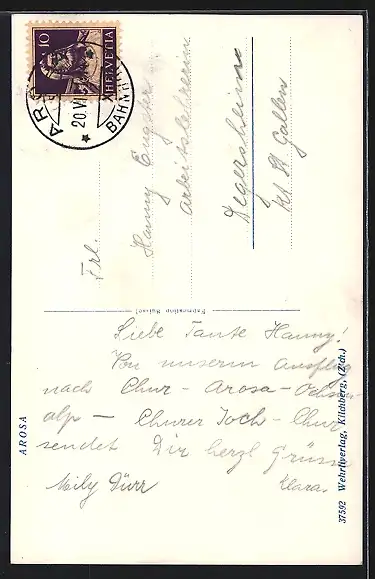 10
HELVETIA
20.VI
BAHNH
Frl.
Hanny Engler
Arbeitslehrerin
Degersheim
Kt St Gallen
Liebe Tante Hanny!
Von unserm Ausflug
nach Chur – Arosa – Ochsen-
alp – Churer Joch – Chur
sendet Dir herzl Grüsse
Mily Dürr Klara.
AROSA
37592 Wehrliverlag, Kilchberg, (Zch.)